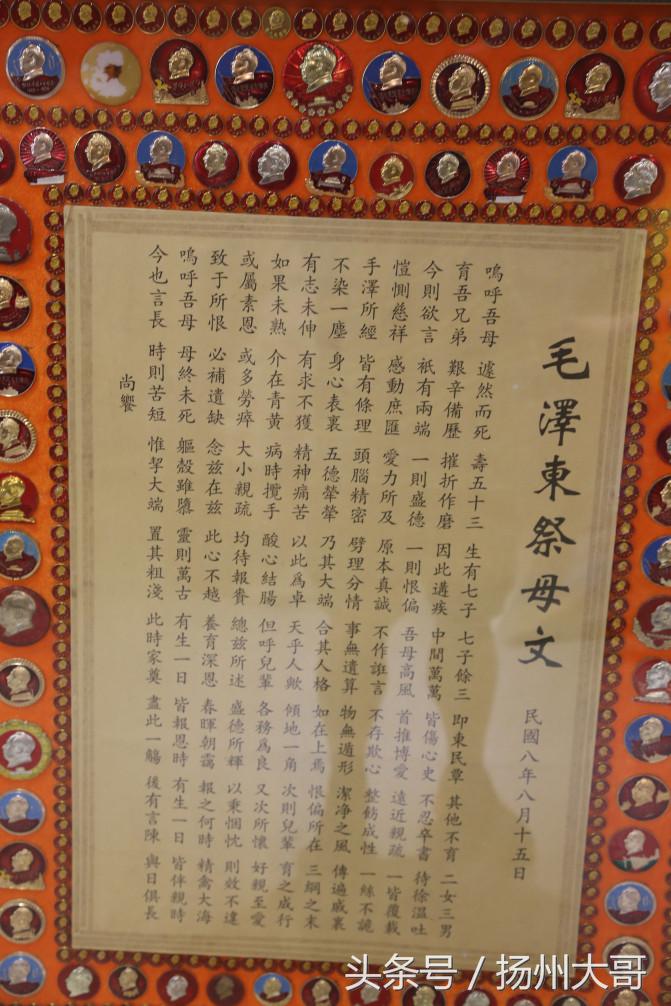 毛澤東祭母文
民國八年八月十五日
嗚呼吾母 遽然而死 壽五十三 生有七子 七子餘三 即東民覃 其他不育 二女三男
育吾兄弟 艱辛備歷 摧折作磨 因此遘疾 中間萬萬 皆傷心史 不忍卒書 待徐溫吐
今則欲言 衹有兩端 一則盛德 一則恨偏 吾母高風 首推博愛 遠近親疏 一皆覆載
愷惻慈祥 感動庶匯 愛力所及 原本真誠 不作誑言 不存欺心 整飭成性 一絲不詭
手澤所經 皆有條理 頭腦精密 劈理分情 事無遺算 物無遁形 潔净之風 傳遍戚裏
不染一塵 身心表裏 五德犖犖 乃其大端 合其人格 如在上焉 恨偏所在 三綱之末
有志未伸 有求不獲 精神痛苦 以此爲卓 天乎人歟 傾地一角 次則兒輩 育之成行
如果未熟 介在青黄 病時攬手 酸心結腸 但呼兒輩 各務爲良 又次所懷 好親至愛
或屬素恩 或多勞瘁 大小親疏 均待報賚 總兹所述 盛德所輝 以秉悃忱 則效不違
致于所恨 必補遺缺 念兹在兹 此心不越 養育深恩 春暉朝靄 報之何時 精禽大海
嗚呼吾母 母終未死 軀殼雖隳 靈則萬古 有生一日 皆報恩時 有生一日 皆伴親時
今也言長 時則苦短 惟挈大端 置其粗淺 此時家奠 盡此一觴 後有言陳 與日俱長
尚饗
头条号 / 扬州大哥